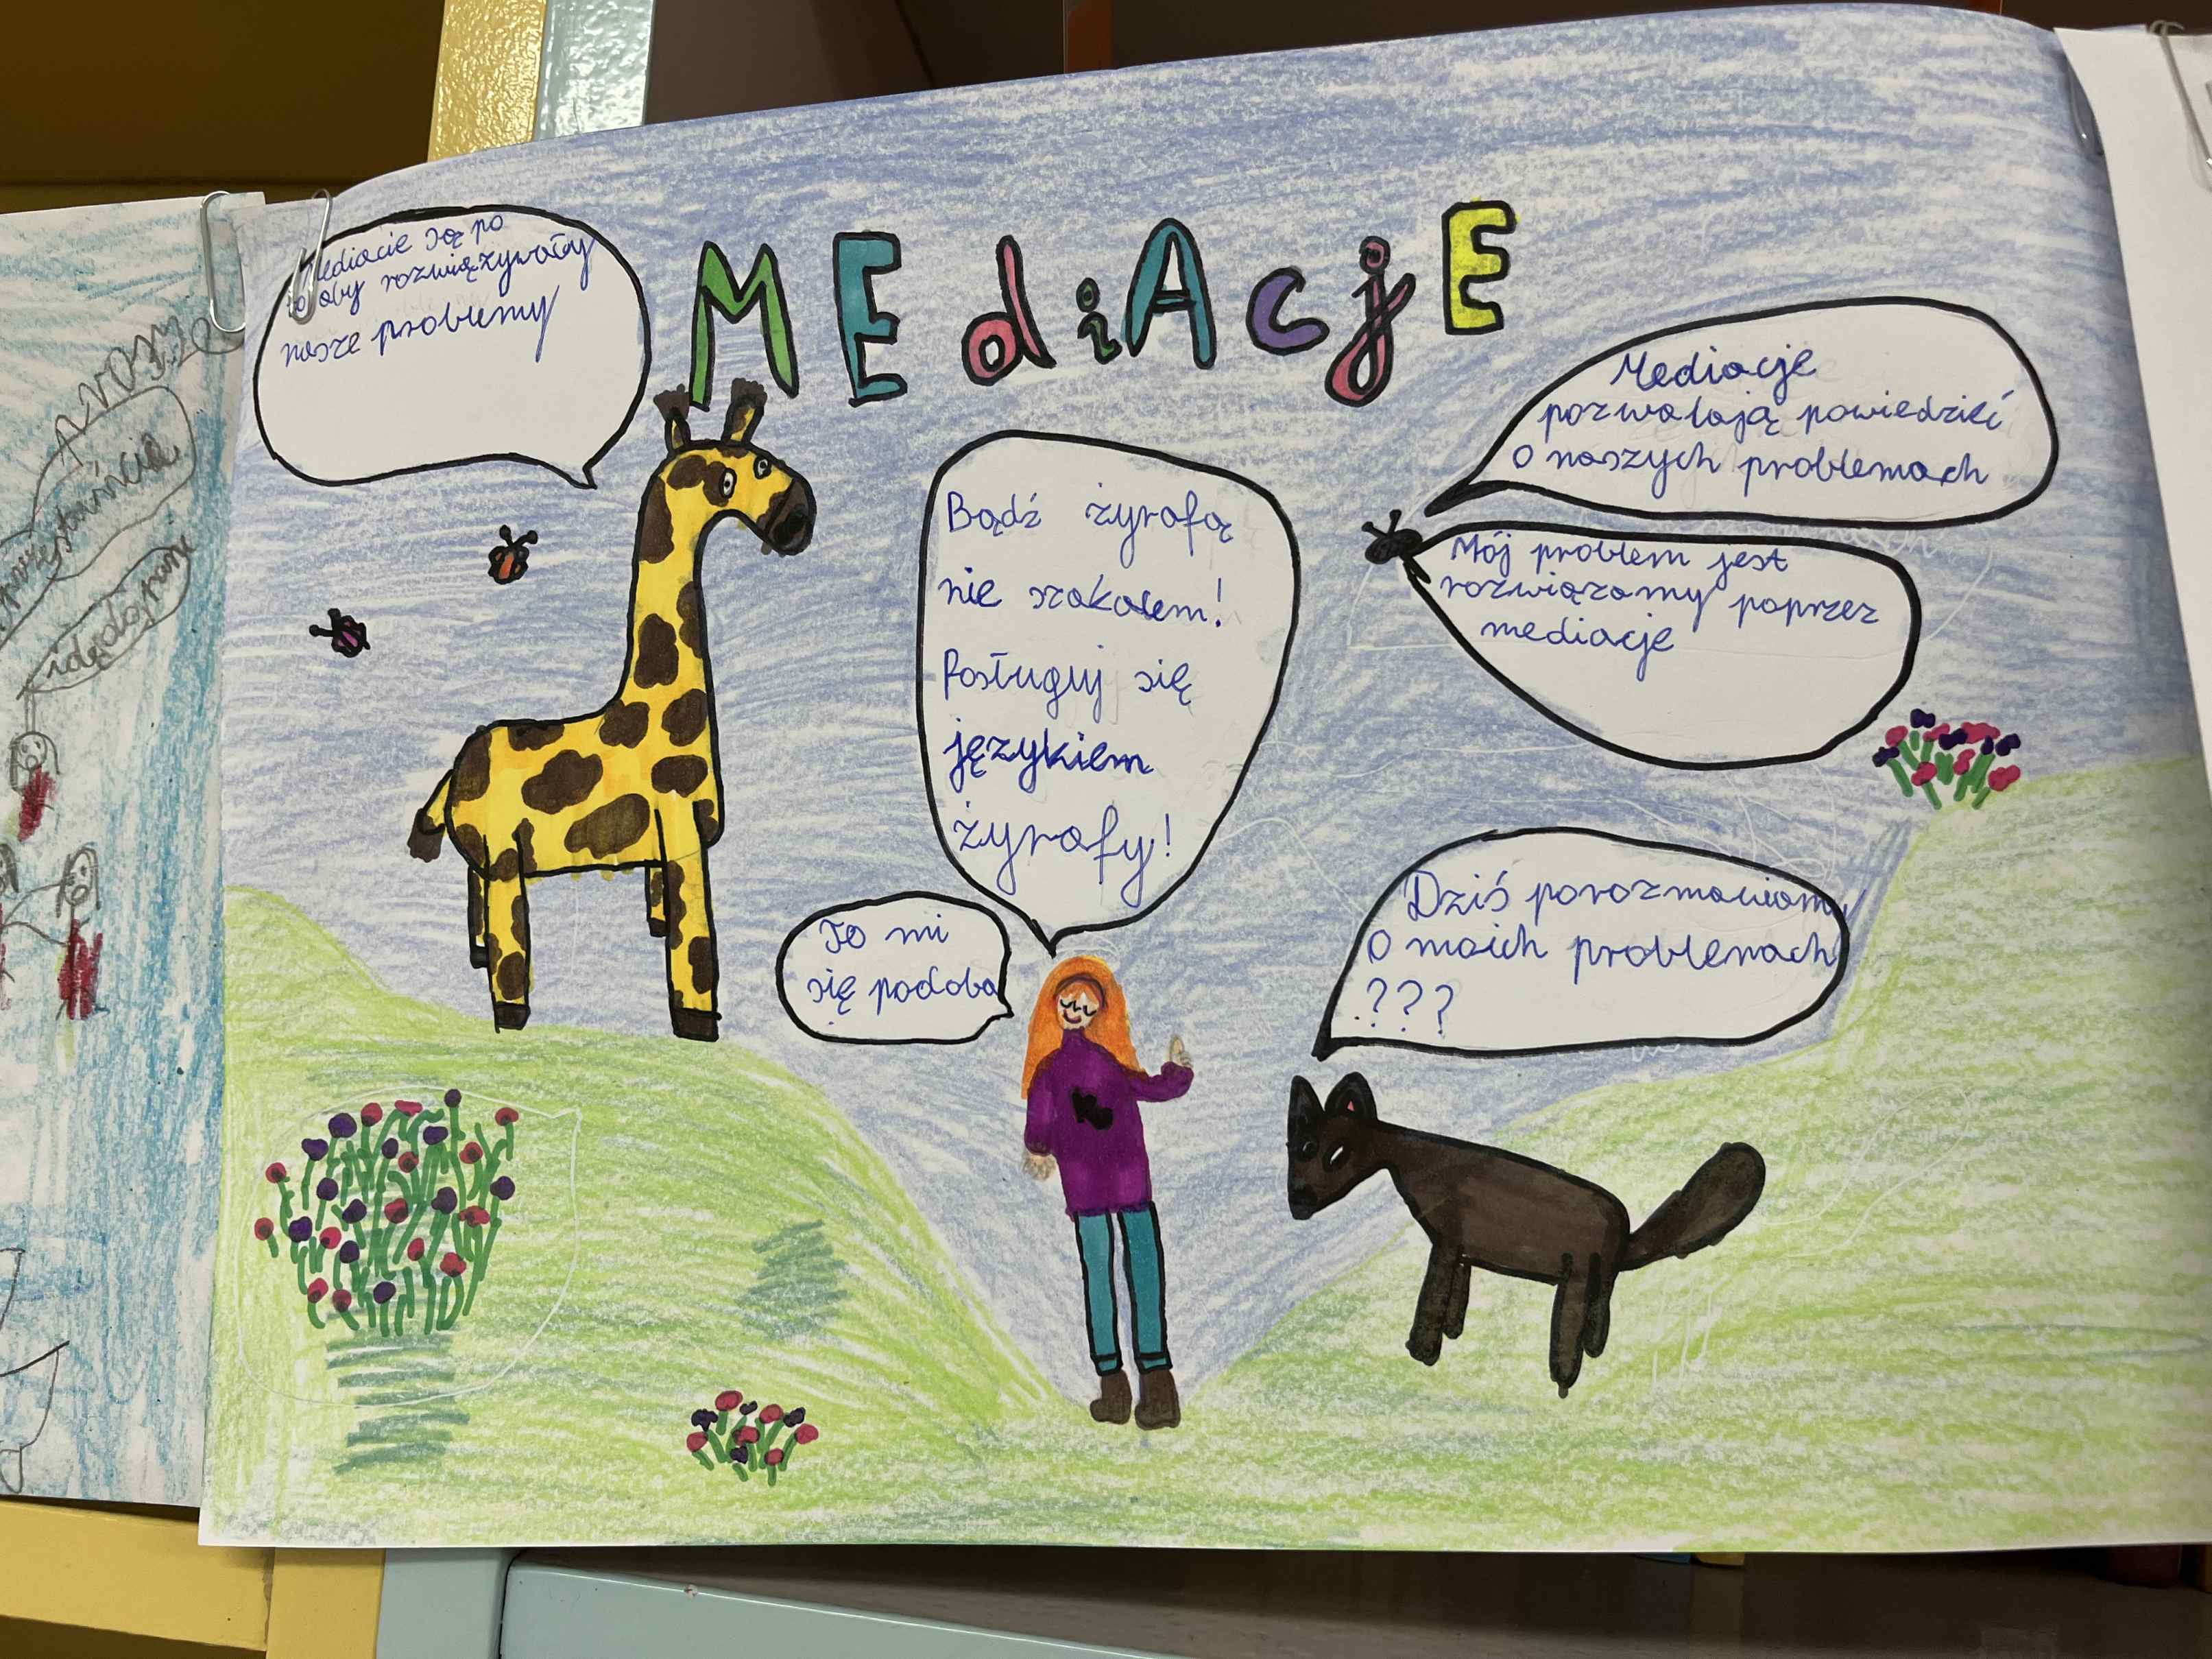 MEdiAcjE
Mediacie są po
to aby rozwiązywały
nasze problemy
Mediacje
pozwalają powiedzieć
o naszych problemach
Bądź żyrafą
nie szakalem!
Posługuj się
językiem
żyrafy!
Mój problem jest
rozwiązamy poprzez
mediacje
To mi
się podoba
Dziś porozmawiamy
O moich problemach
???
idę do pani